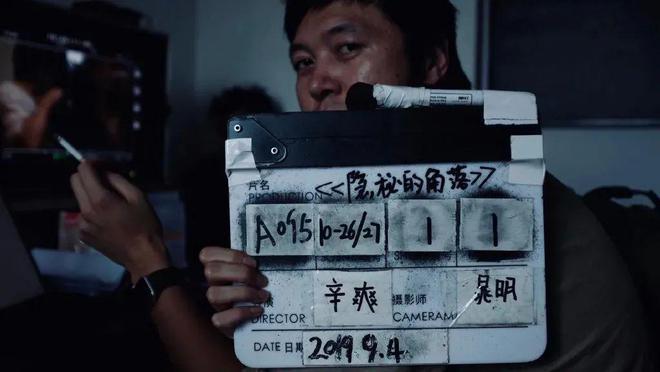 片名
PRODUCTION <<隐秘的角落>>
A095 10-26/27 1 1
辛爽 摄影师 晁明
DIRECTOR CAMERAMA
DATE 日期 2019 9.4